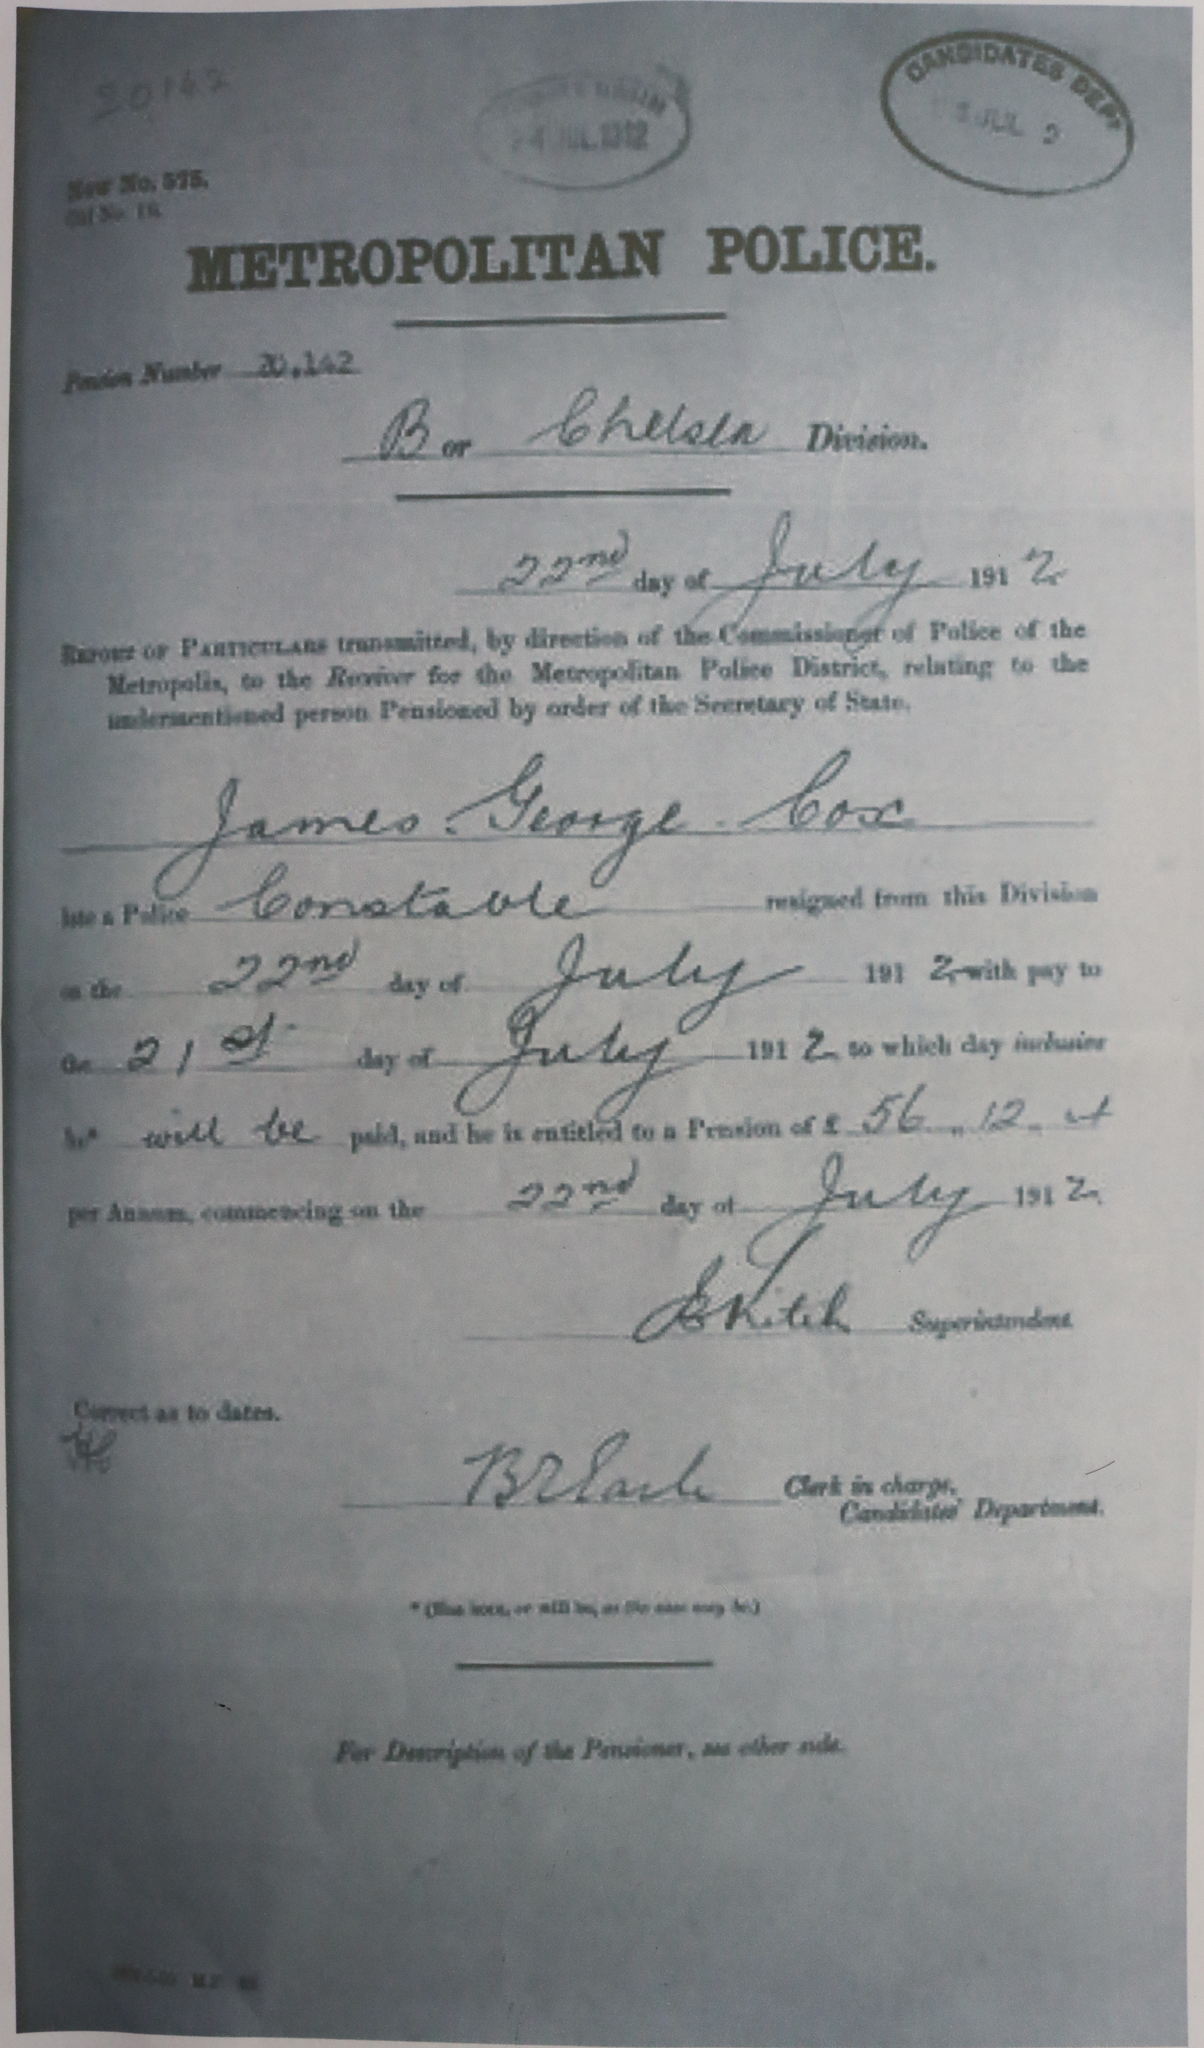 20142
4 JUL.1912
CANDIDATES DEPT
JUL 2
New No. 575.
Old No.
METROPOLITAN POLICE.
Pension Number 20,142
B or Chelsea Division.
22nd day of July 1912
REPORT OF PARTICULARS transmitted, by direction of the Commissioner of Police of the
Metropolis, to the Receiver for the Metropolitan Police District, relating to the
undermentioned person Pensioned by order of the Secretary of State.
James George Cox
late a Police Constable resigned from this Division
on the 22nd day of July 1912 with pay to
the 21st day of July 1912 to which day inclusive
he* will be paid, and he is entitled to a Pension of £ 56 .. 12 .. 4
per Annum, commencing on the 22nd day of July 1912.
Superintendent.
Correct as to dates.
Clerk in charge,
Candidates' Department.
* (Has been, or will be, as the case may be.)
For Description of the Pensioner, see other side.